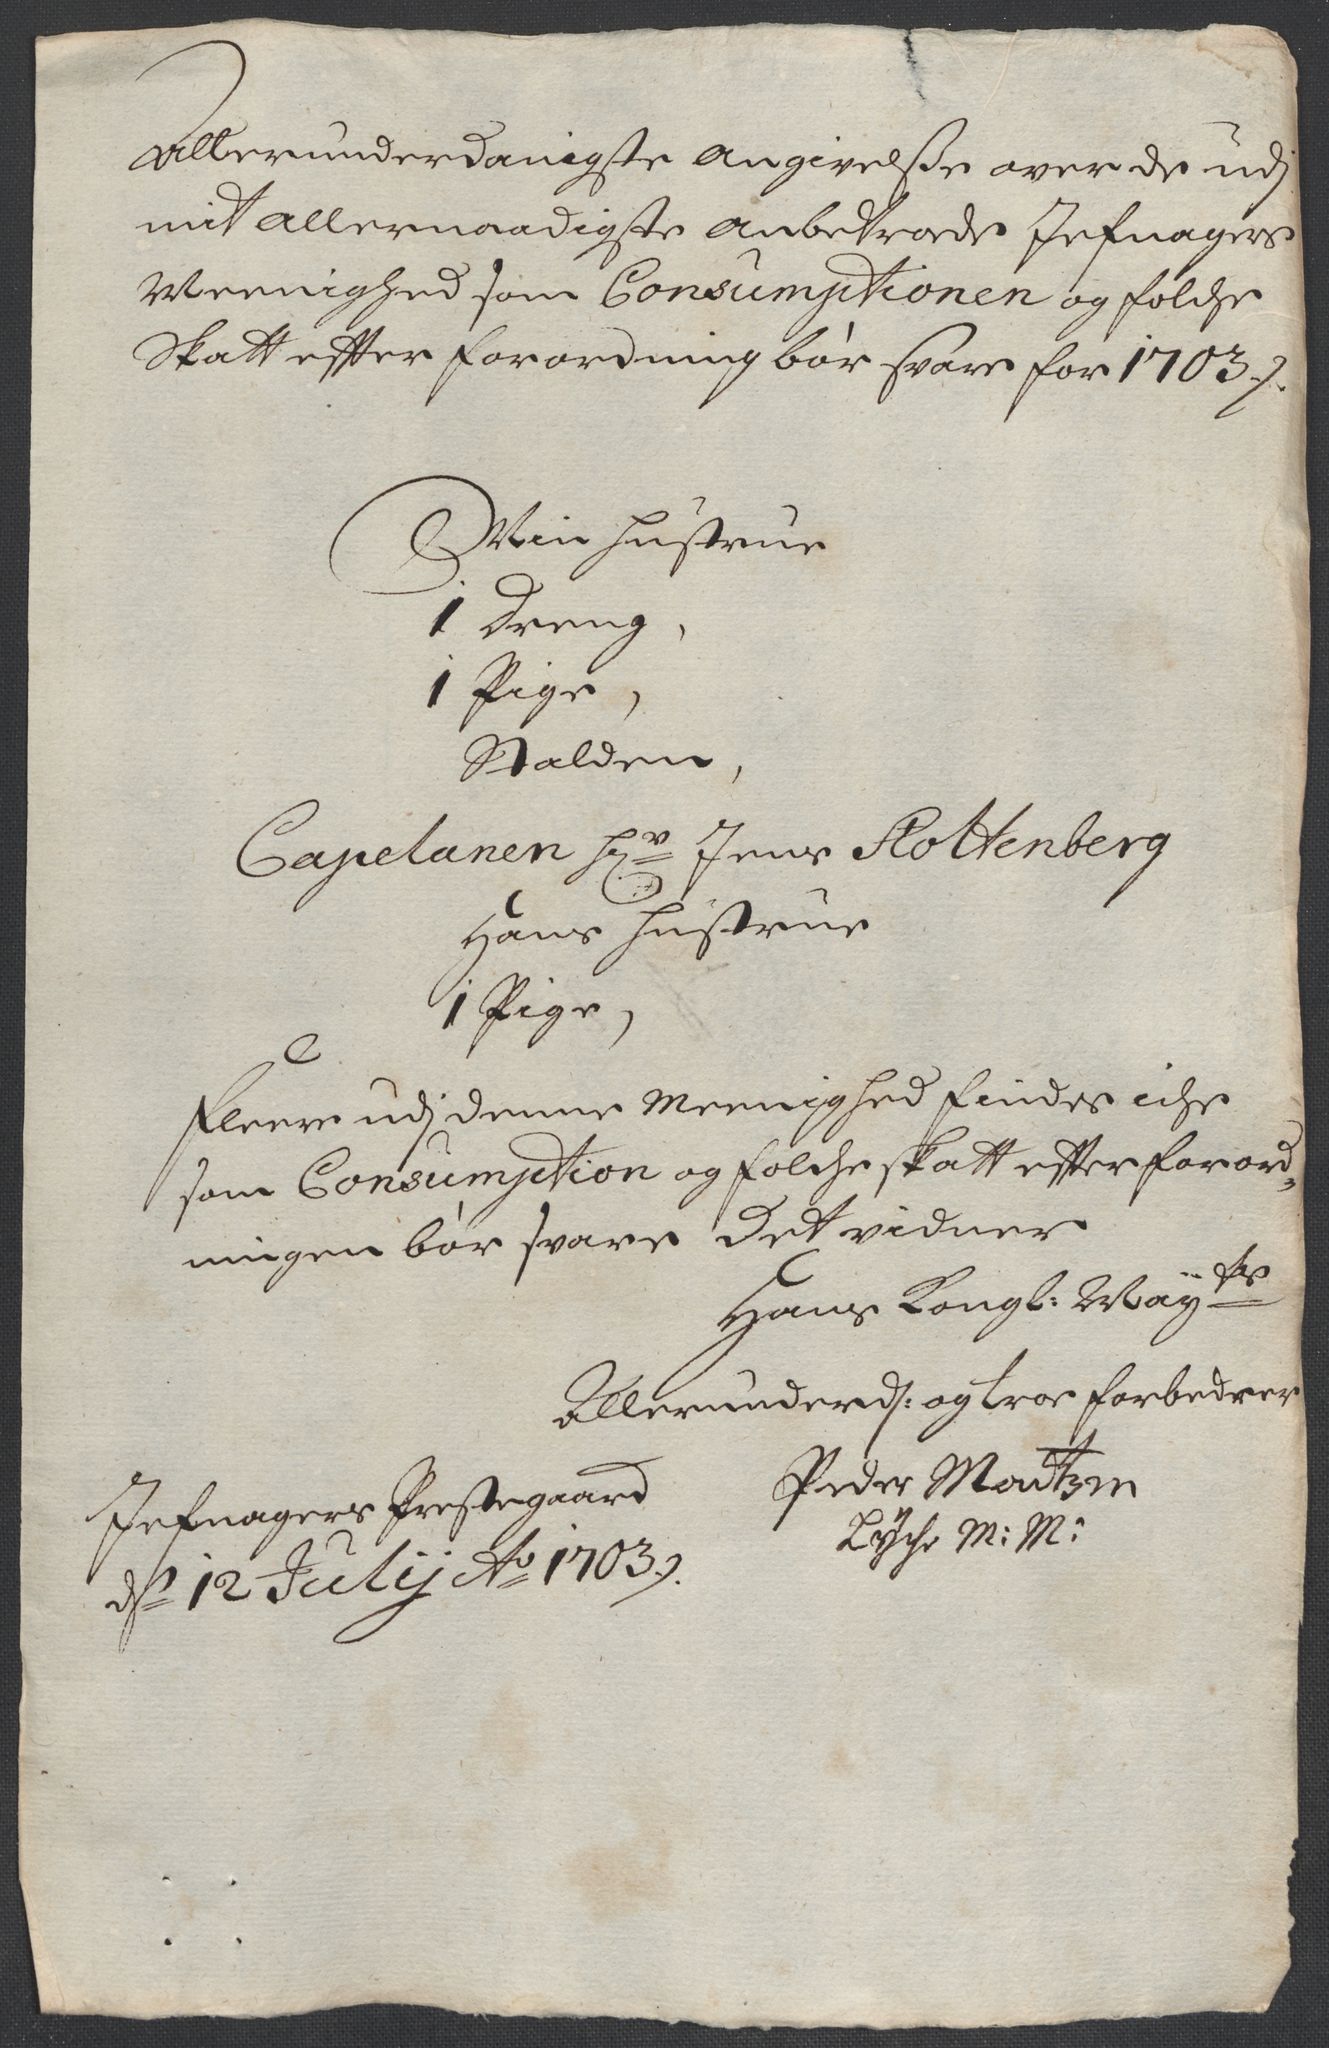 Allerunderdanigste Angivelsse over de udj
mit allernaadigste anbetroede Jefnagers
Meenighed som Consumptionen og folche
Skatt effter forordning bør svare for 1703 ?.
Min hustrue
1 Dreng,
1 Pige,
Stalden,
Capelanen hr Jens Rottenberg
Hans hustrue
1 Pige,
Fleere udj denne Meenighed findes iche
som Consumption og folche skatt effter forord„
ningen bør svare det vidner
Hans Kongl: Maÿts
Allerunderd: og troe forbedrer
Jefnagers Prestegaard
Peder Madtzen
Lÿche M: M:
ds 12 Julij Ao 1703 ?.